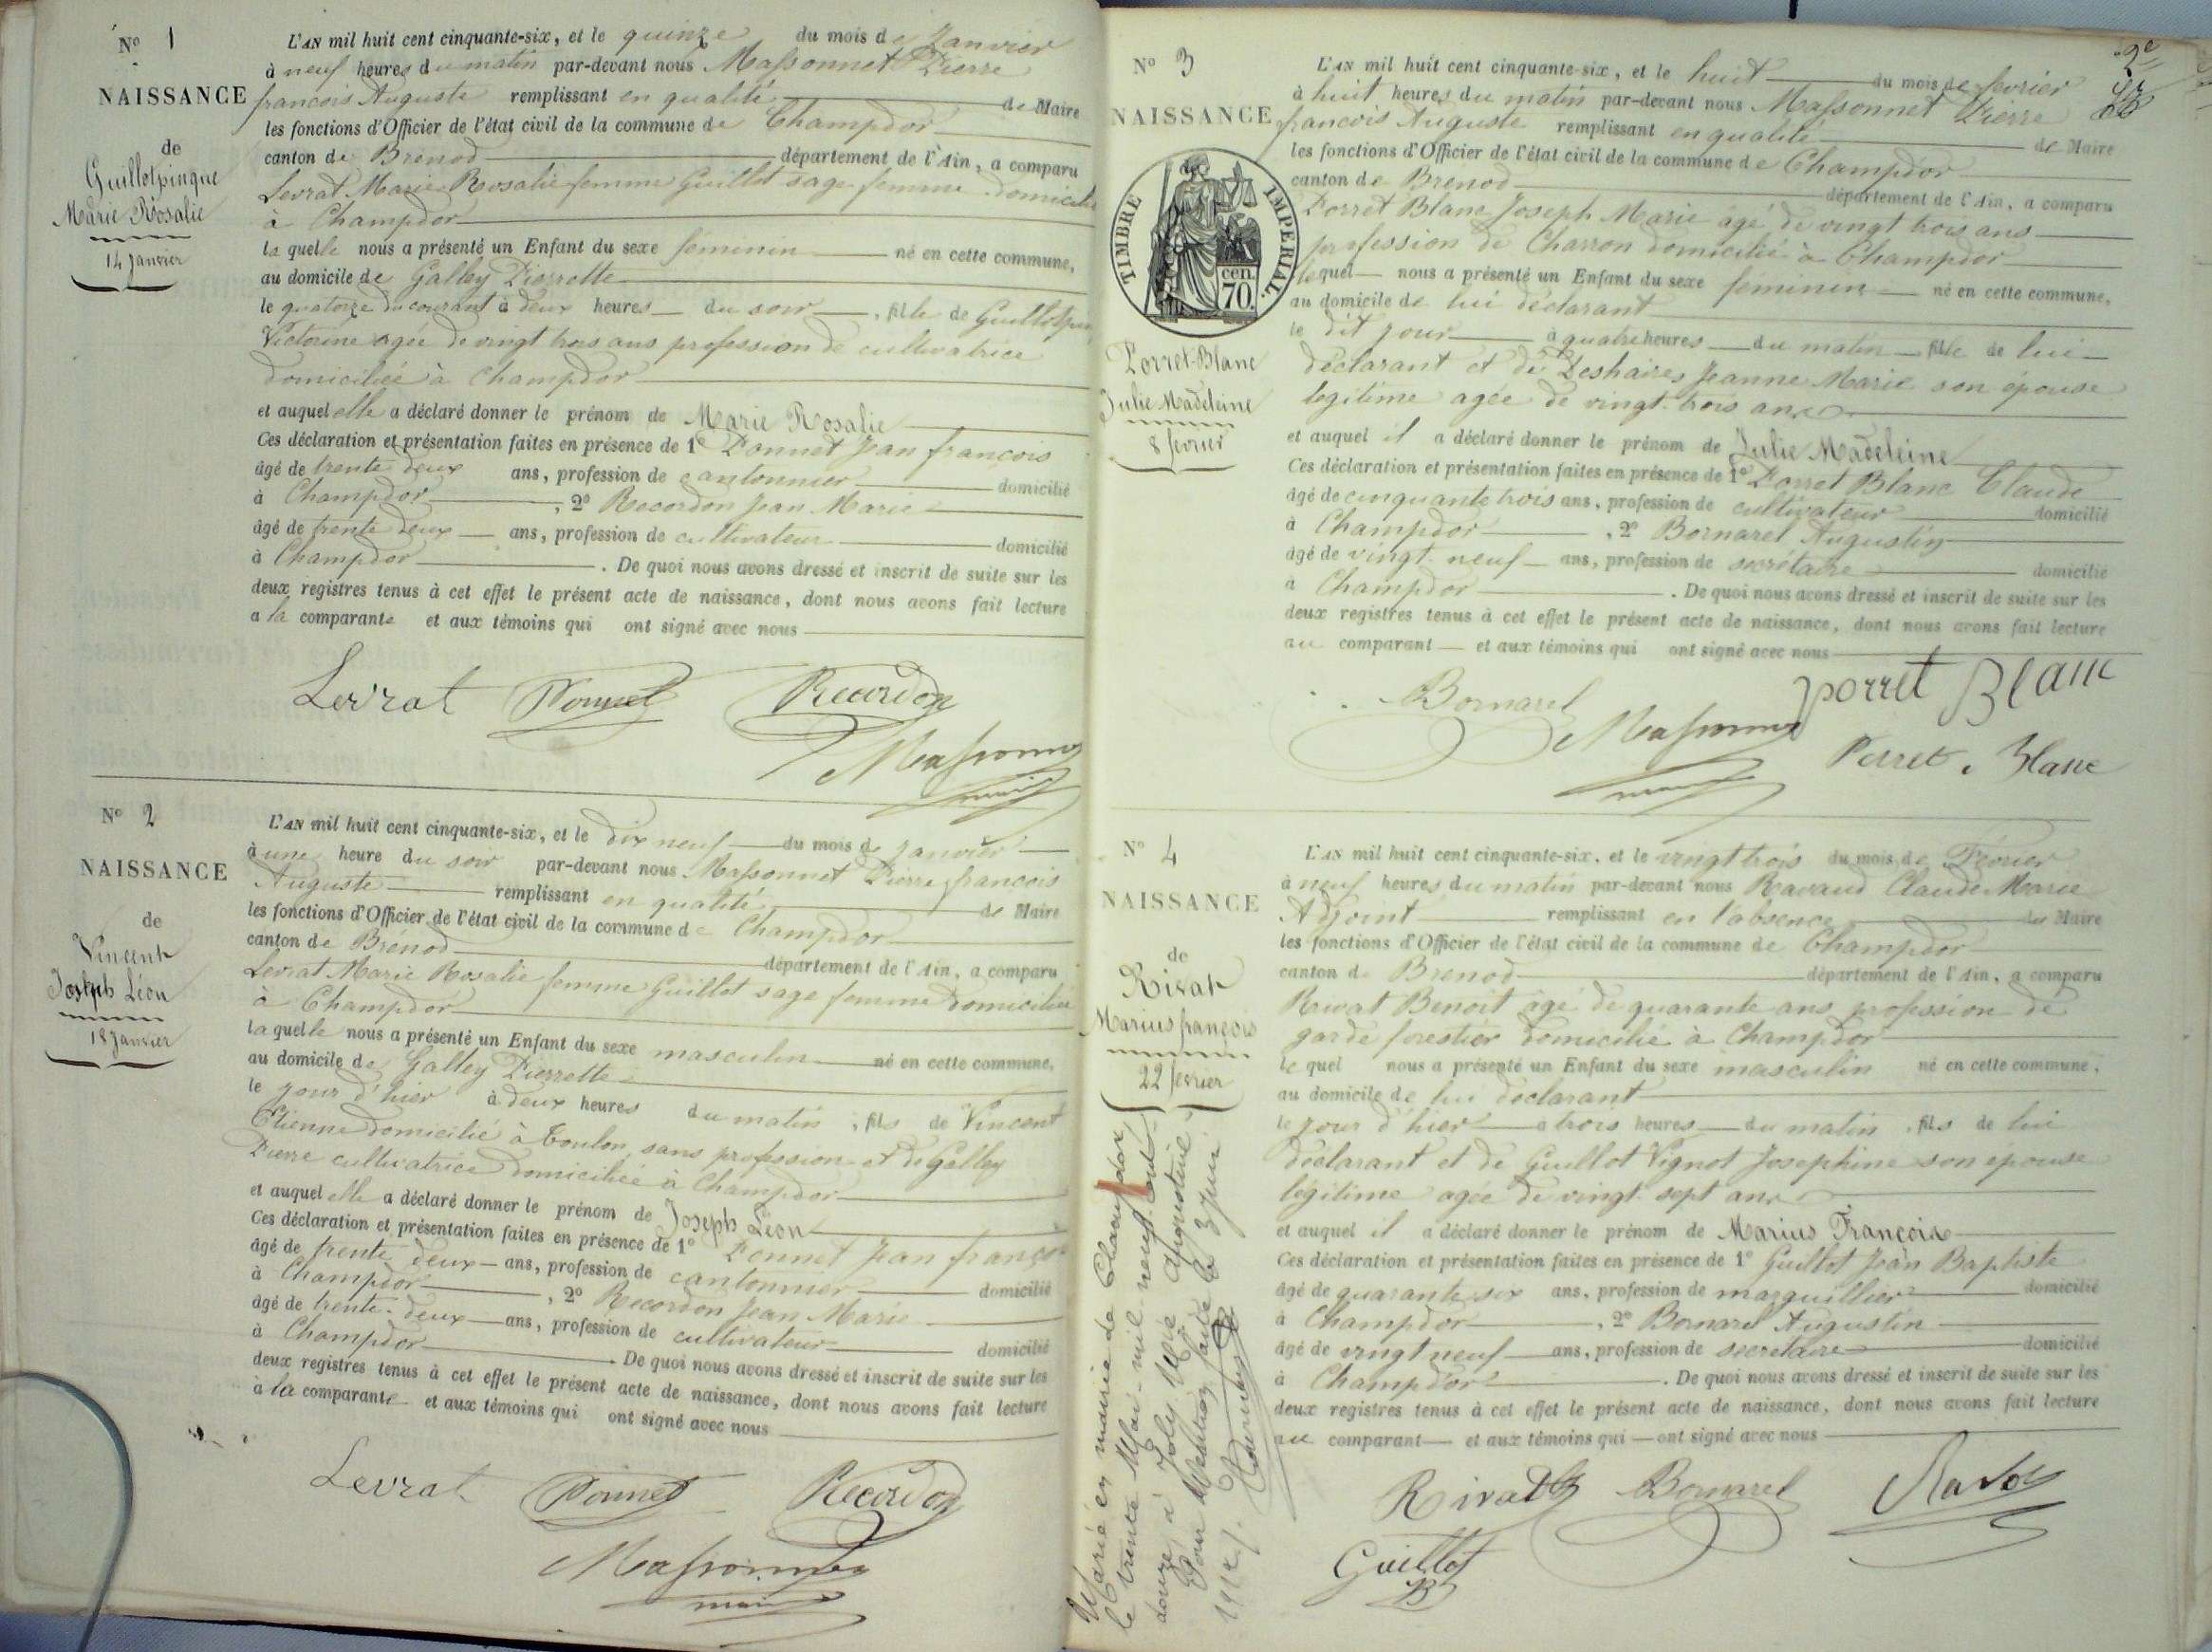 N° 1
NAISSANCE
de
Guillotpingue
Marie Rosalie
14 Janvier
L'AN mil huit cent cinquante-six, et le quinze du mois de Janvier
à neuf heures du matin par-devant nous Massonnet Pierre
francois Auguste remplissant en qualité de Maire
les fonctions d'Officier de l'état civil de la commune de Champdor
canton de Brenod département de l'Ain, a comparu
Levrat Marie Rosalie femme Guillot sage femme domiciliée
à Champdor
la quelle nous a présenté un Enfant du sexe féminin né en cette commune,
au domicile de Galley Pierrette
le quatorze du courant à deux heures du soir, fille de
Victorine agée de vingt trois ans profession de cultivatrice
domiciliée à Champdor
et auquel elle a déclaré donner le prénom de Marie Rosalie
Ces déclaration et présentation faites en présence de 1° Ponnet Jean francois
âgé de trente deux ans, profession de cantonnier domicilié
à Champdor, 2° Recordon Jean Marie
âgé de trente deux ans, profession de cultivateur domicilié
à Champdor. De quoi nous avons dressé et inscrit de suite sur les
deux registres tenus à cet effet le présent acte de naissance, dont nous avons fait lecture
a la comparante et aux témoins qui ont signé avec nous
Levrat Ponnet Recordon
Massonnet
maire
N° 2
NAISSANCE
de
Vincent
Joseph Léon
18 Janvier
L'AN mil huit cent cinquante-six, et le dix neuf du mois de janvier
à une heure du soir par-devant nous Massonnet Pierre francois
Auguste remplissant en qualité de Maire
les fonctions d'Officier de l'état civil de la commune de Champdor
canton de Brénod département de l'Ain, a comparu
Levrat Marie Rosalie femme Guillot sage femme domiciliée
à Champdor
la quelle nous a présenté un Enfant du sexe masculin né en cette commune,
au domicile de Galley Pierrette
le jour d'hier à deux heures du matin, fils de Vincent
Etienne domicilié à Toulon, sans profession et de Galley
Pierre cultivatrice domiciliée à Champdor
et auquel elle a déclaré donner le prénom de Joseph Léon
Ces déclaration et présentation faites en présence de 1° Ponnet Jean franço
âgé de trente deux ans, profession de cantonnier domicilié
à Champdor, 2° Recordon Jean Marie
âgé de trente-deux ans, profession de cultivateur domicilié
à Champdor. De quoi nous avons dressé et inscrit de suite sur les
deux registres tenus à cet effet le présent acte de naissance, dont nous avons fait lecture
à la comparante et aux témoins qui ont signé avec nous
Levrat Ponnet Recordon
Massonnet
maire
2e
N° 3
NAISSANCE
TIMBRE IMPERIAL.
70 cen.
Porret-Blanc
Julie Madeleine
8 février
L'AN mil huit cent cinquante-six, et le huit du mois de fevrier
à huit heures du matin par-devant nous Massonnet Pierre
francois Auguste remplissant en qualité de Maire
les fonctions d'Officier de l'état civil de la commune de Champdor
canton de Brenod département de l'Ain, a comparu
Porret Blanc Joseph Marie agé de vingt trois ans
profession de Charron domicilié à Champdor
lequel nous a présenté un Enfant du sexe féminin né en cette commune,
au domicile de lui déclarant
le dit jour à quatre heures du matin fille de lui
déclarant et de Deshaires Jeanne Marie son épouse
legitime agée de vingt-trois ans
et auquel il a déclaré donner le prénom de Julie Madeleine
Ces déclaration et présentation faites en présence de 1° Porret Blanc Claude
âgé de cinquante trois ans, profession de cultivateur domicilié
à Champdor, 2° Bornarel Augustin
âgé de vingt-neuf ans, profession de secrétaire domicilié
à Champdor. De quoi nous avons dressé et inscrit de suite sur les
deux registres tenus à cet effet le présent acte de naissance, dont nous avons fait lecture
au comparant et aux témoins qui ont signé avec nous
Bornarel Massonnet porret Blanc
maire Porret Blanc
N° 4
NAISSANCE
de
Rivat
Marius françois
22 fevrier
L'AN mil huit cent cinquante-six, et le vingt trois du mois de Février
à neuf heures du matin par-devant nous Ravaud Claude Marie
Adjoint remplissant en l'absence du Maire
les fonctions d'Officier de l'état civil de la commune de Champdor
canton de Brenod département de l'Ain, a comparu
Rivat Benoit âgé de quarante ans profession de
garde forestier domicilié à Champdor
le quel nous a présenté un Enfant du sexe masculin né en cette commune,
au domicile de lui déclarant
le jour d'hier a trois heures du matin, fils de lui
déclarant et de Guillot Vignot Josephine son épouse
légitime agée de vingt-sept ans
et auquel il a déclaré donner le prénom de Marius François
Ces déclaration et présentation faites en présence de 1° Guillot Jean Baptiste
âgé de quarante six ans, profession de marguillier domicilié
à Champdor, 2° Bornarel Augustin
âgé de vingt neuf ans, profession de secretaire domicilié
à Champdor. De quoi nous avons dressé et inscrit de suite sur les
deux registres tenus à cet effet le présent acte de naissance, dont nous avons fait lecture
au comparant et aux témoins qui ont signé avec nous
Rivat B Bornarel
Guillot
JB
Marié en mairie de Champdor,
le trente Mai mil neuf cent
douze, à Joly Marie
Pour Mention faite le 3 Juin
1912.